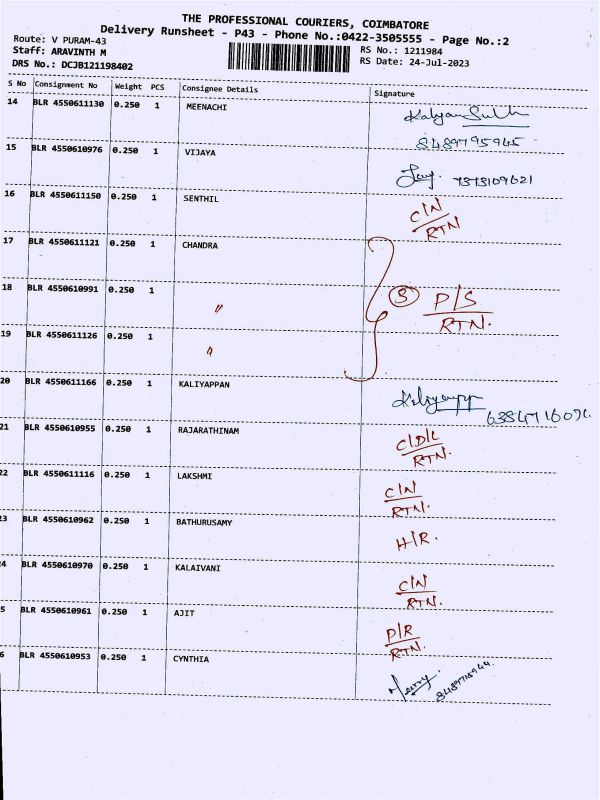 THE PROFESSIONAL COURIERS, COIMBATORE
Delivery Runsheet - P43 - Phone No.:0422-3505555 - Page No.:2
Route: V PURAM-43
Staff: ARAVINTH M
DRS No.: DCJB121198402
RS No.: 1211984
RS Date: 24-Jul-2023
S No Consignment No Weight PCS Consignee Details Signature
14 BLR 4550611130 0.250 1 MEENACHI
8489795945
15 BLR 4550610976 0.250 1 VIJAYA
7373109621
16 BLR 4550611150 0.250 1 SENTHIL C/N
RTN
17 BLR 4550611121 0.250 1 CHANDRA
18 BLR 4550610991 0.250 1 " 3 P/S
RTN.
19 BLR 4550611126 0.250 1 "
20 BLR 4550611166 0.250 1 KALIYAPPAN
21 BLR 4550610955 0.250 1 RAJARATHINAM C/D/L
RTN.
22 BLR 4550611116 0.250 1 LAKSHMI C/N
RTN.
3 BLR 4550610962 0.250 1 BATHURUSAMY H/R.
4 BLR 4550610970 0.250 1 KALAIVANI C/N
RTN.
5 BLR 4550610961 0.250 1 AJIT P/R
RTN.
6 BLR 4550610953 0.250 1 CYNTHIA